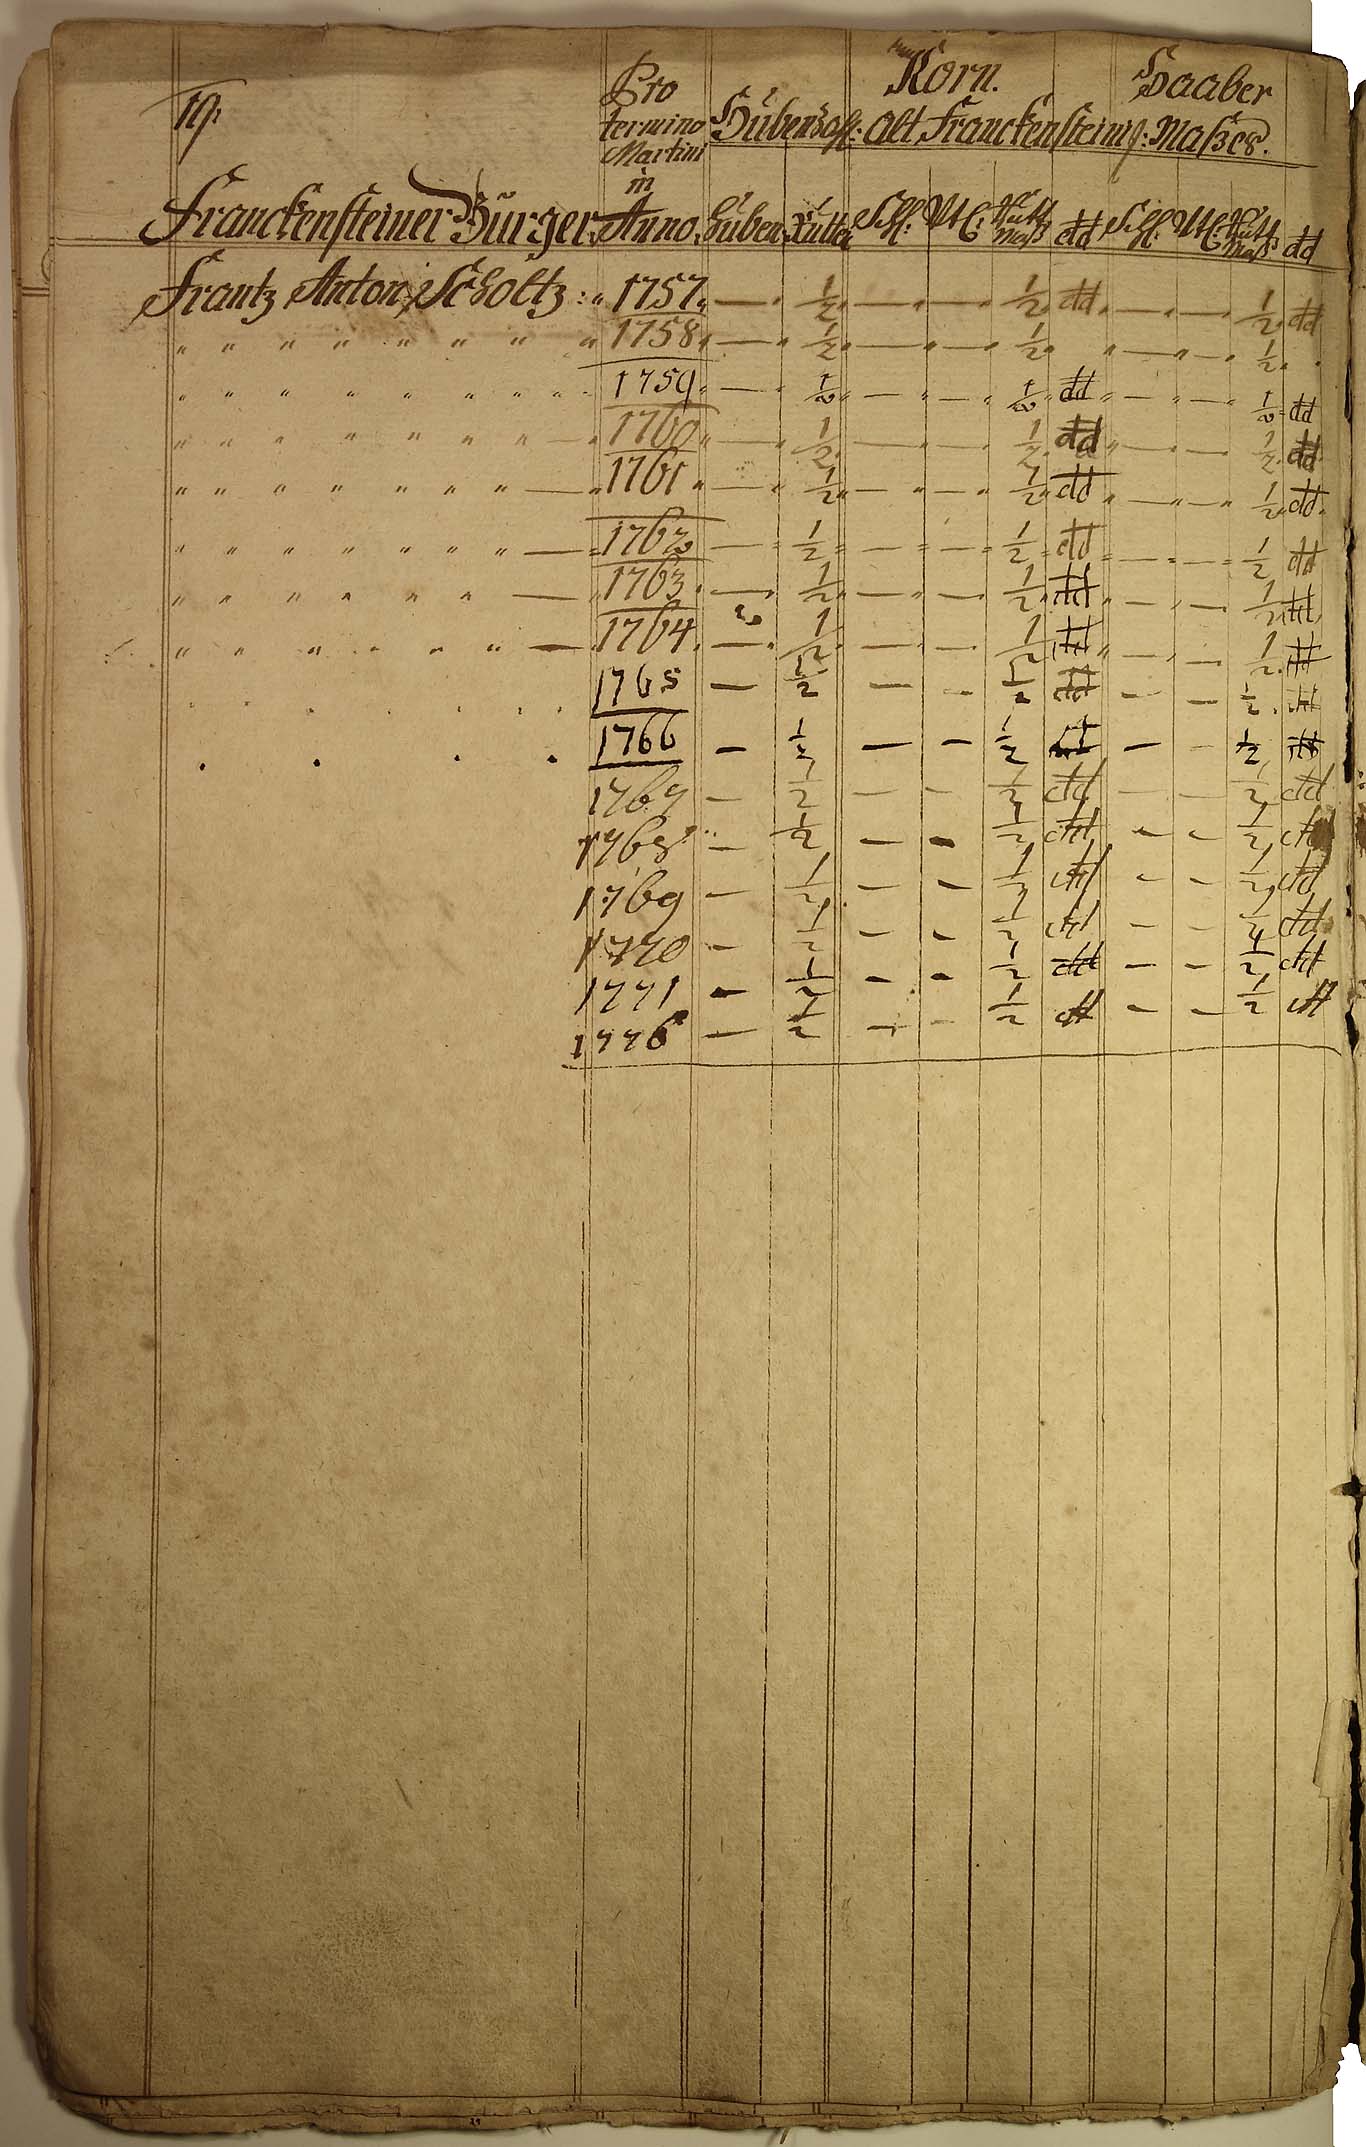 19.
Pro termino Martini in Anno
Korn.
Haaber
Hubenzahl: Alt Franckensteining: Maßes.
Franckensteiner Bürger. Huben. Rutten Schfl: Vtl: Hutt Maß dd Schfl: Vtl: Hutt Maß dd
Frantz Anton Scholtz: " 1757. — 1/2 — — 1/2 dd — — 1/2 dd
" " " " " " " " 1758 — 1/2 — — 1/2 " — — 1/2
" " " " " " " " 1759 — 1/2 — — 1/2 dd — — 1/2 dd
" " " " " " " — 1760 — 1/2 — — 1/2 dd — — 1/2 dd
" " " " " " " — 1761 — 1/2 — — 1/2 dd — — 1/2 dd
" " " " " " " — 1762 — 1/2 — — 1/2 dd — — 1/2 dd
" " " " " " — 1763 — 1/2 — — 1/2 dd — — 1/2 dd
" " " " " " — 1764 — 1/2 — — 1/2 dd — — 1/2 dd
. . . . . . 1765 — 1/2 — — 1/2 dd — — 1/2 dd
. . . . 1766 — 1/2 — — 1/2 dd — — 1/2 dd
1767 — 1/2 — — 1/2 dd — — 1/2 dd
1768 — 1/2 — — 1/2 dd — — 1/2 dd
1769 — 1/2 — — 1/2 dd — — 1/2 dd
1770 — 1/2 — — 1/2 dd — — 1/2 dd
1771 — 1/2 — — 1/2 dd — — 1/2 dd
1776 — 1/2 — — 1/2 dd — — 1/2 dd